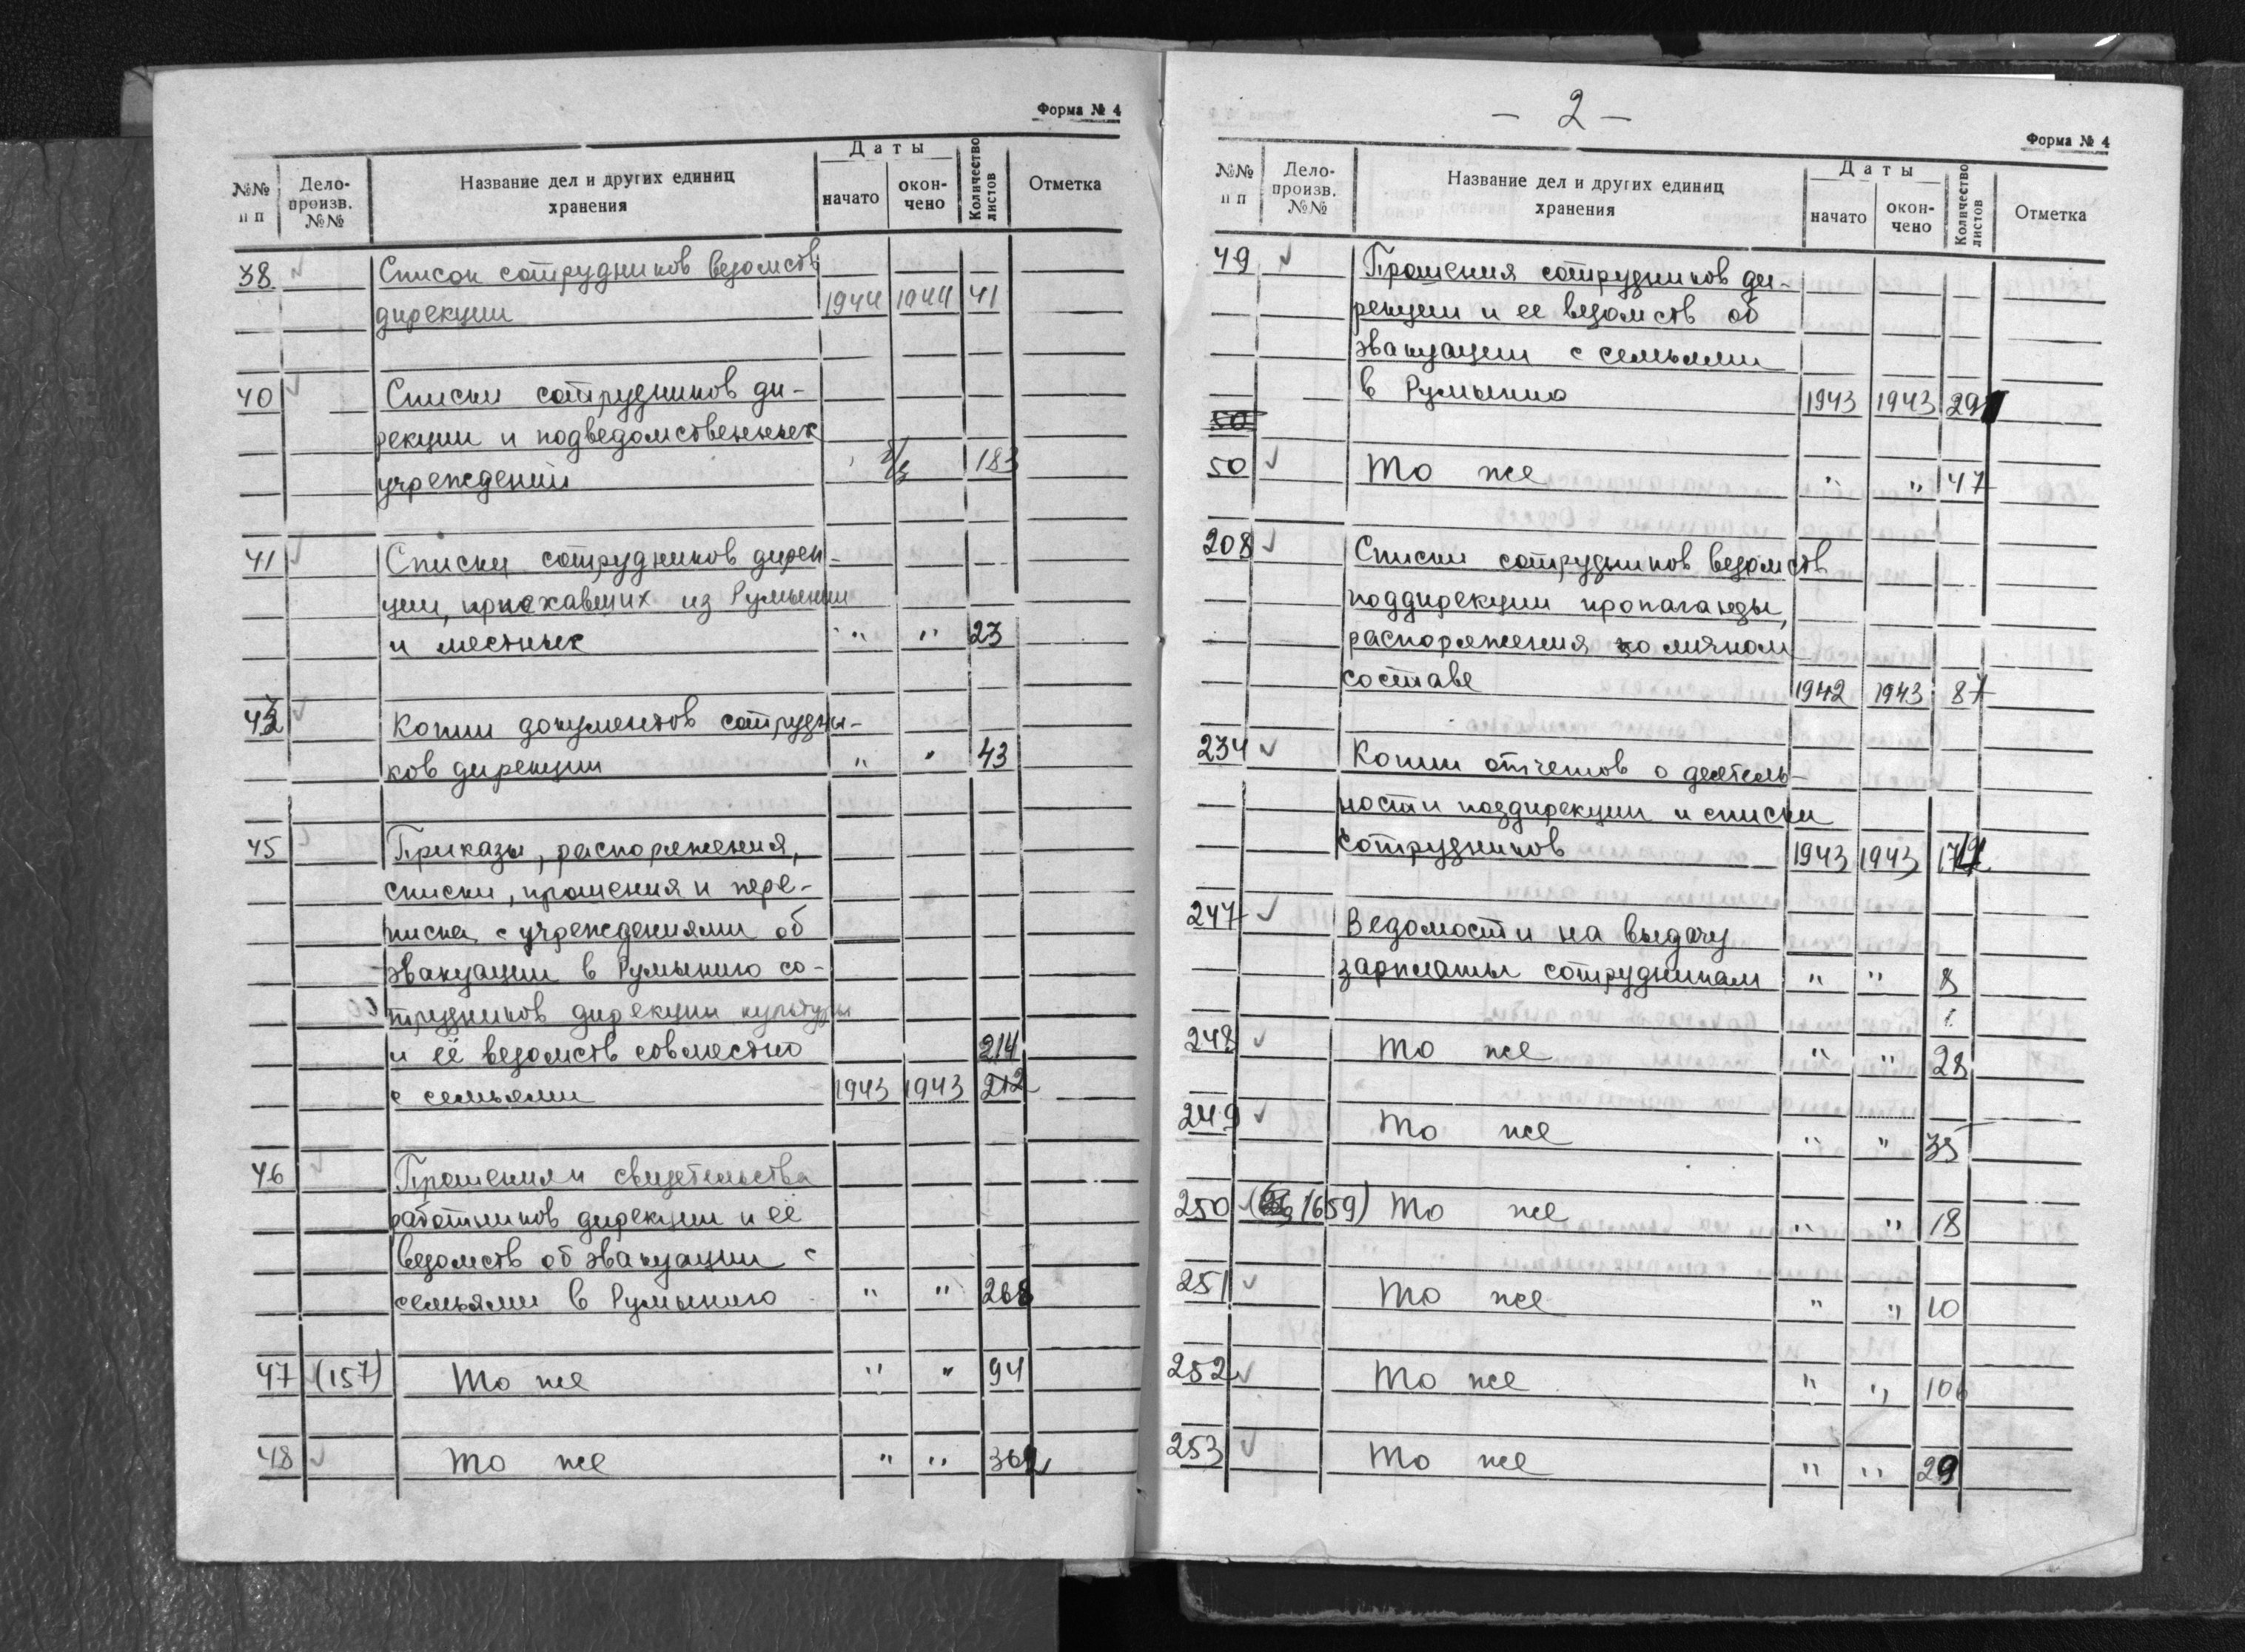 Форма № 4
№№ п п Дело- произв. №№ Название дел и других единиц хранения Даты начато окон- чено Количество листов Отметка
38 Список сотрудников ведомств
дирекции 1944 1944 41
40 Списки сотрудников ди-
рекции и подведомственных
учреждений б/д 183
41 Списки сотрудников дирек-
ции, приехавших из Румынии
и местных " " 23
Копии документов сотрудни-
ков дирекции " " 43
45 Приказы, распоряжения,
списки, прошения и пере-
писка с учреждениями об
эвакуации в Румынию со-
трудников дирекции культуры
и её ведомств совместно 214
с семьями 1943 1943 212
46 Прошения и свидетельства
работников дирекции и её
ведомств об эвакуации с
семьями в Румынию " " 268
47 (157) То же " " 94
48 То же " " 362
- 2 -
Форма № 4
№№ п п Дело- произв. №№ Название дел и других единиц хранения Даты начато окон- чено Количество листов Отметка
49 Прошения сотрудников ди-
рекции и ее ведомств об
эвакуации с семьями
в Румынию 1943 1943 29
50
50 То же " " 47
208 Списки сотрудников ведомств
поддирекции пропаганды,
распоряжения о личном
составе 1942 1943 87
234 Копии отчетов о деятель-
ности поддирекции и списки
сотрудников 1943 1943
247 Ведомости на выдачу
зарплаты сотрудникам " " 8
248 То же " " 28
249 То же " " 35
250 1659) То же " " 18
251 То же " " 10
252 То же " " 106
253 То же " " 29